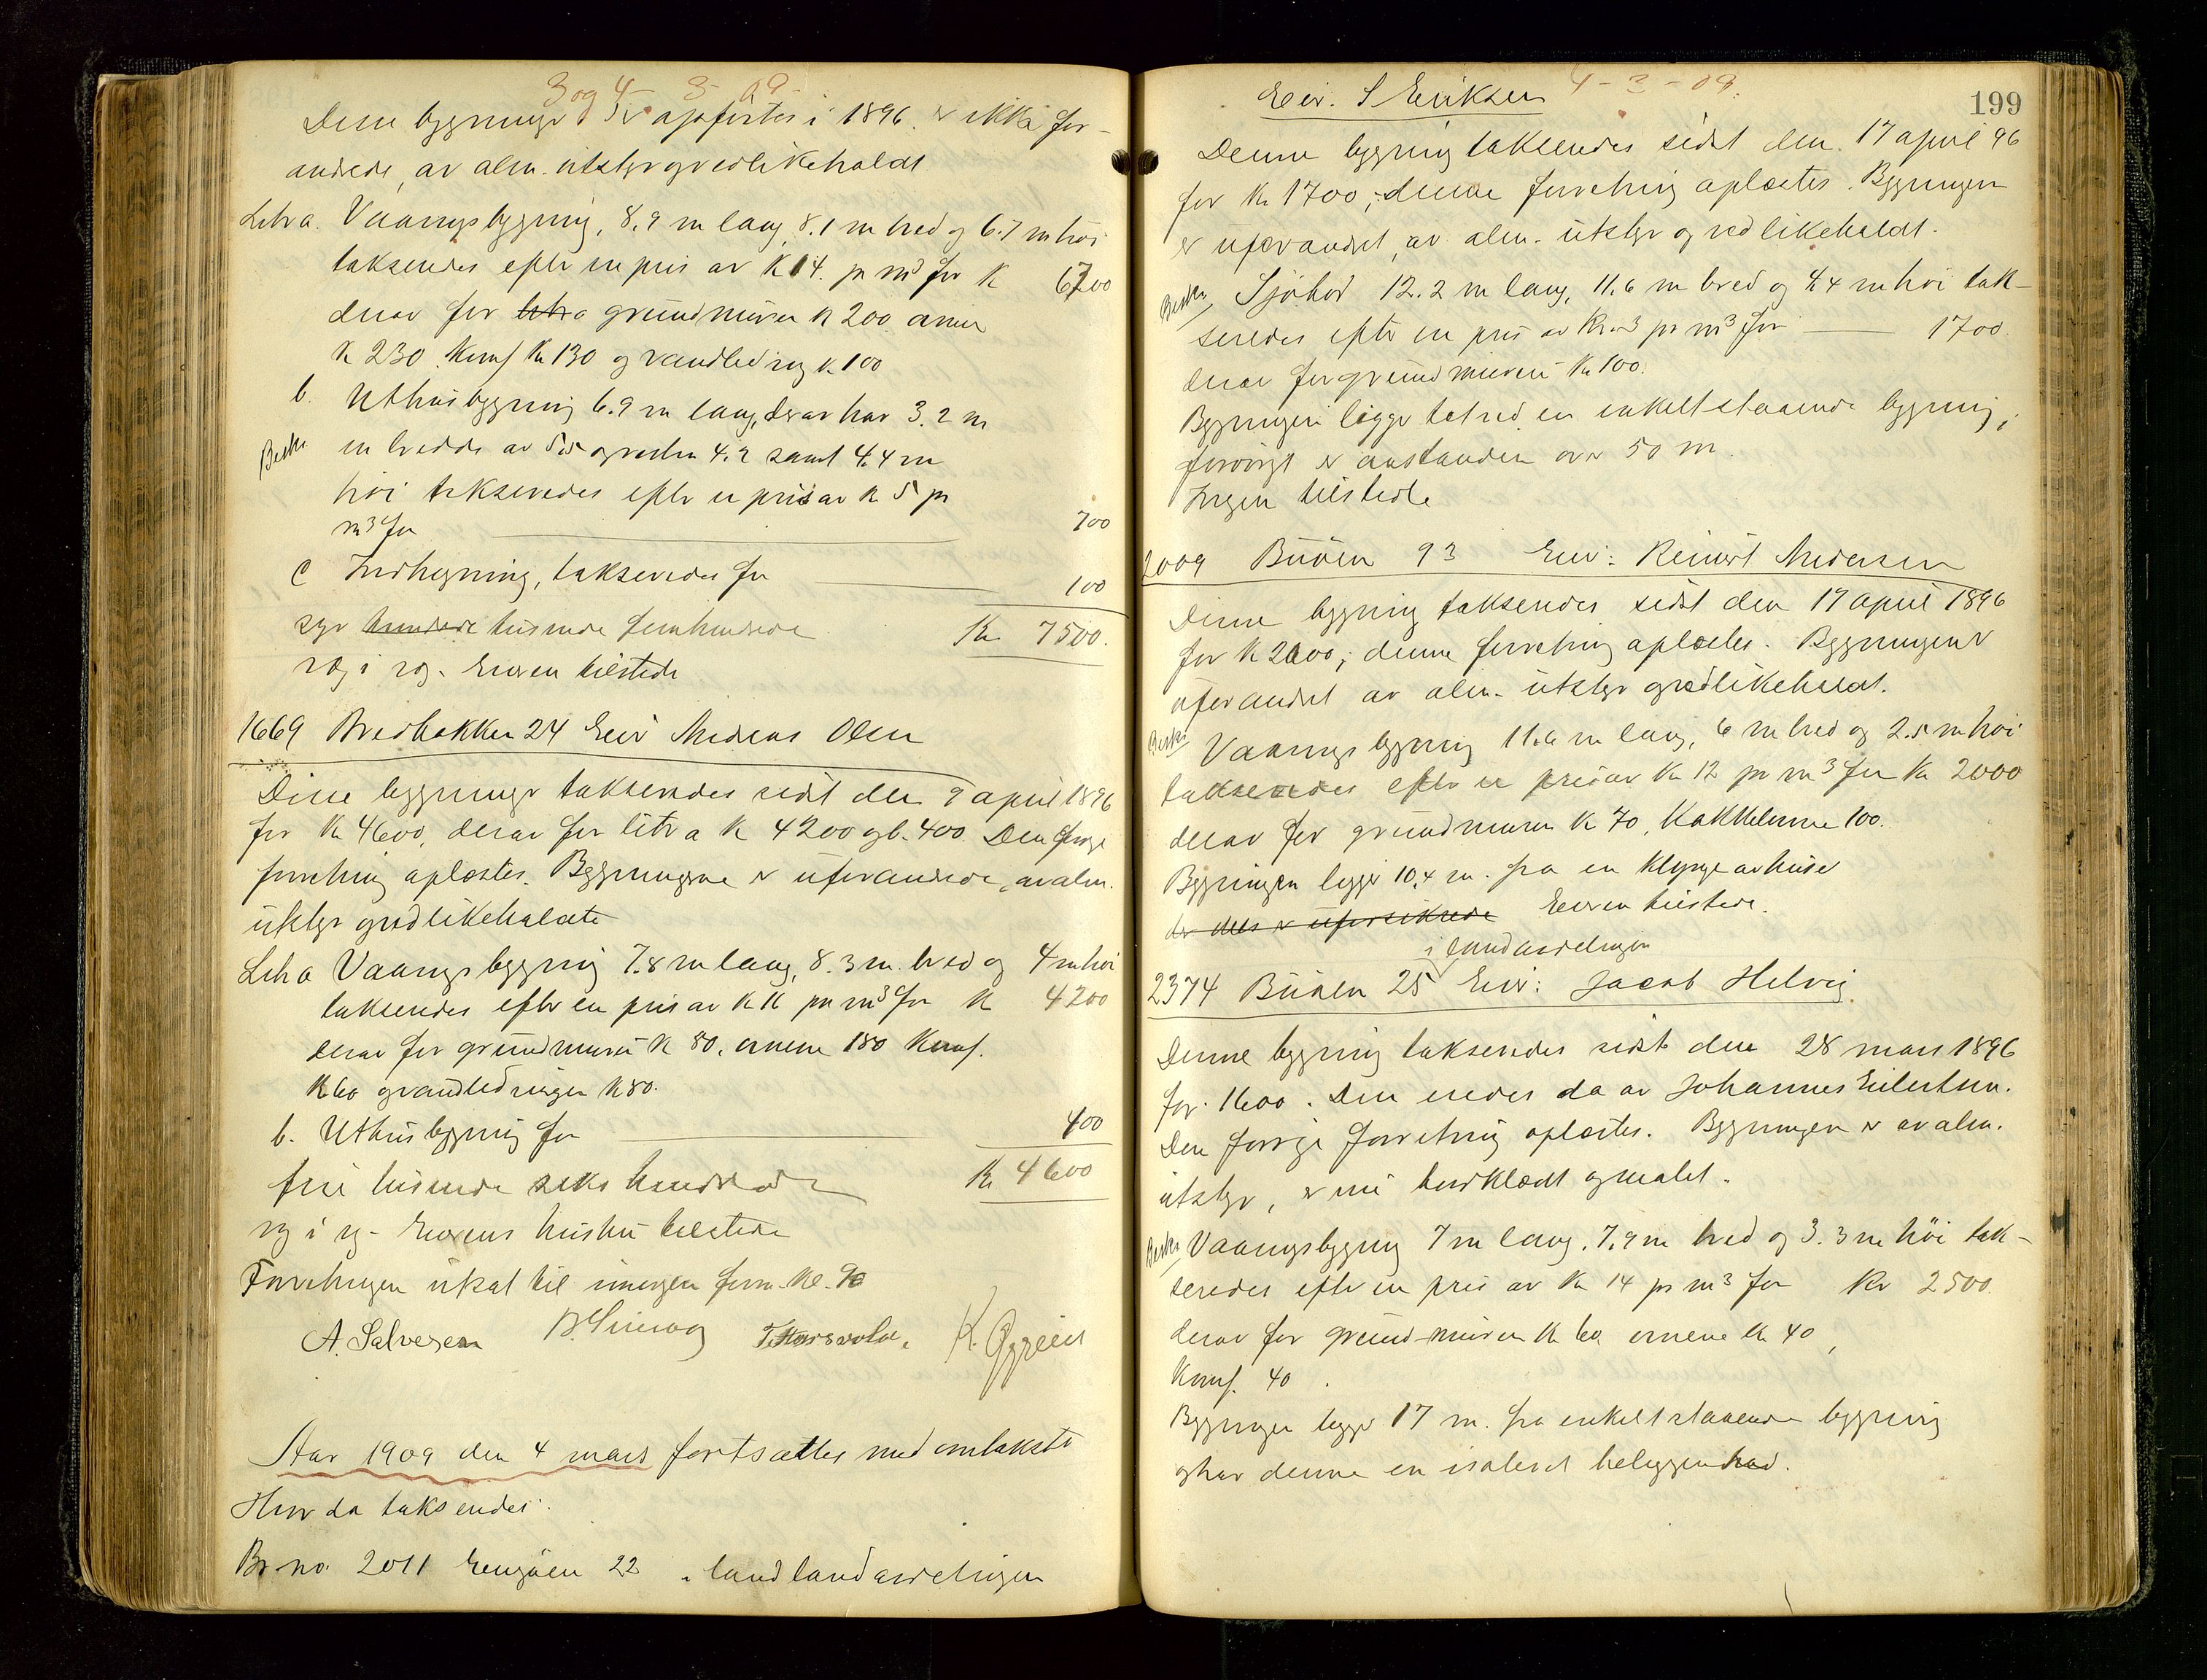 3 og 4 - 3 - 09 -
Disse bygninger er opførtes i 1896. er ikke for-
andrede, av alm. utstyr og vedlikeholdt.
Litra a. Vaaningsbygning, 8.9 m lang, 8.1 m bred og 6.7 m høi
takseredes efter en pris av K 14. pr m3 for K 6700
derav for litra grundmuren K 200 ovner
K 230 Komf Kr 130 og vandledning K 100
b. Uthusbygning 6.9 m lang, derav har 3.2 m
Besk. en bredde av 5.5 og resten 4.2 samt 4.4 m
høi takseredes efter en pris av K 5 pr
m3 for 700
c Indhegning, takseredes for 100
syv hundrede tusinde femhundrede Kr 7500.
væg i væg. Eieren tilstede
1669 Bredbakken 24 Eier Andreas Olsen
Disse bygninger takseredes sidst den 9 april 1896
for Kr 4600, derav for litr a K 4200 og b. 400. Den forrige
forretning oplæstes. Bygningerne er uforandrede, av alm.
utstyr og vedlikeholdte
Litra a Vaaningsbygning 7.8 m lang, 8.3 m. bred og 4 m høi
takseredes efter en pris av K 16 pr m3 for K 4200
derav for grundmuren K 80, ovnene 180 Komf.
K 60 og vandledningen K 80.
b. Uthusbygning for 400
fire tusinde seks hundrede Kr 4600
væg i væg - Eierens hustru tilstede
Forretningen utsat til imorgen form. kl. 9
A. Salvesen
Aar 1909 den 4 mars fortsattes med omtakster
Hvor da takseredes:
Br no. 2011 Engøen 22 i landlandavdelingen
199
Eier. S Eriksen 4 - 3 - 09.
Denne bygning takseredes sidst den. 17 april 96
for Kr 1700; denne forretning oplæstes. Bygningen
er uforandret, av alm. utstyr og vedlikeholdt.
Besk. Sjøbod 12.2 m lang, 11.6 m bred og 4.4 m høi tak-
seredes efter en pris av Kr 3 pr m3 for 1700.
derav for grundmuren Kr 100.
Bygningen ligger tæt ved en enkeltstaaende bygning;
forøvrigt er avstanden over 50 m.
Ingen tilstede
2009 Buøen 93 Eier: Reinert Andersen
Denne bygning takseredes sidst den 17 april 1896
for K 2000; denne forretning oplæstes. Bygningen er
uforandret av alm. utstyr og vedlikeholdt.
Besk. Vaaningsbygning 11.6 m lang, 6 m bred og 2.5 m høi
takseredes efter en pris av Kr 12 pr m3 for Kr 2000
derav for grundmuren K 70, Kakkelovne 100.
Bygningen ligger 10.4 m. fra en klynge av huse
der dels er uforsikrede Eieren tilstede.
i landavdelingen
2374 Buøen 25 Eier: Jacob Helvig
Denne bygning takseredes sidst den 28 mars 1896
for. 1600. Den eiedes da av Johannes Eilertsen.
Den forrige forretning oplæstes. Bygningen er av alm.
utstyr, er nu bordklædt og malet.
Besk. Vaaningsbygning 7 m lang. 7.9 m bred og 3.3 m høi tak-
seredes efter en pris av Kr 14 pr m3 for Kr 2500.
derav for grund-muren Kr 60 ovnene Kr 40,
Komf. 40.
Bygningen ligger 17 m. fra enkeltstaaende bygning
og har denne en isoleret beliggenhed.